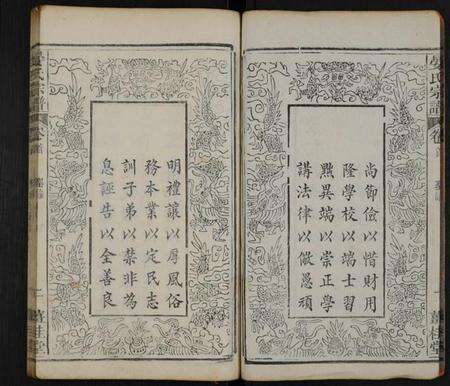 尚節儉以惜財用
隆學校以端士習
黜異端以崇正學
講法律以儆愚頑
明禮讓以厚風俗
務本業以定民志
訓子弟以禁非為
息誣告以全善良